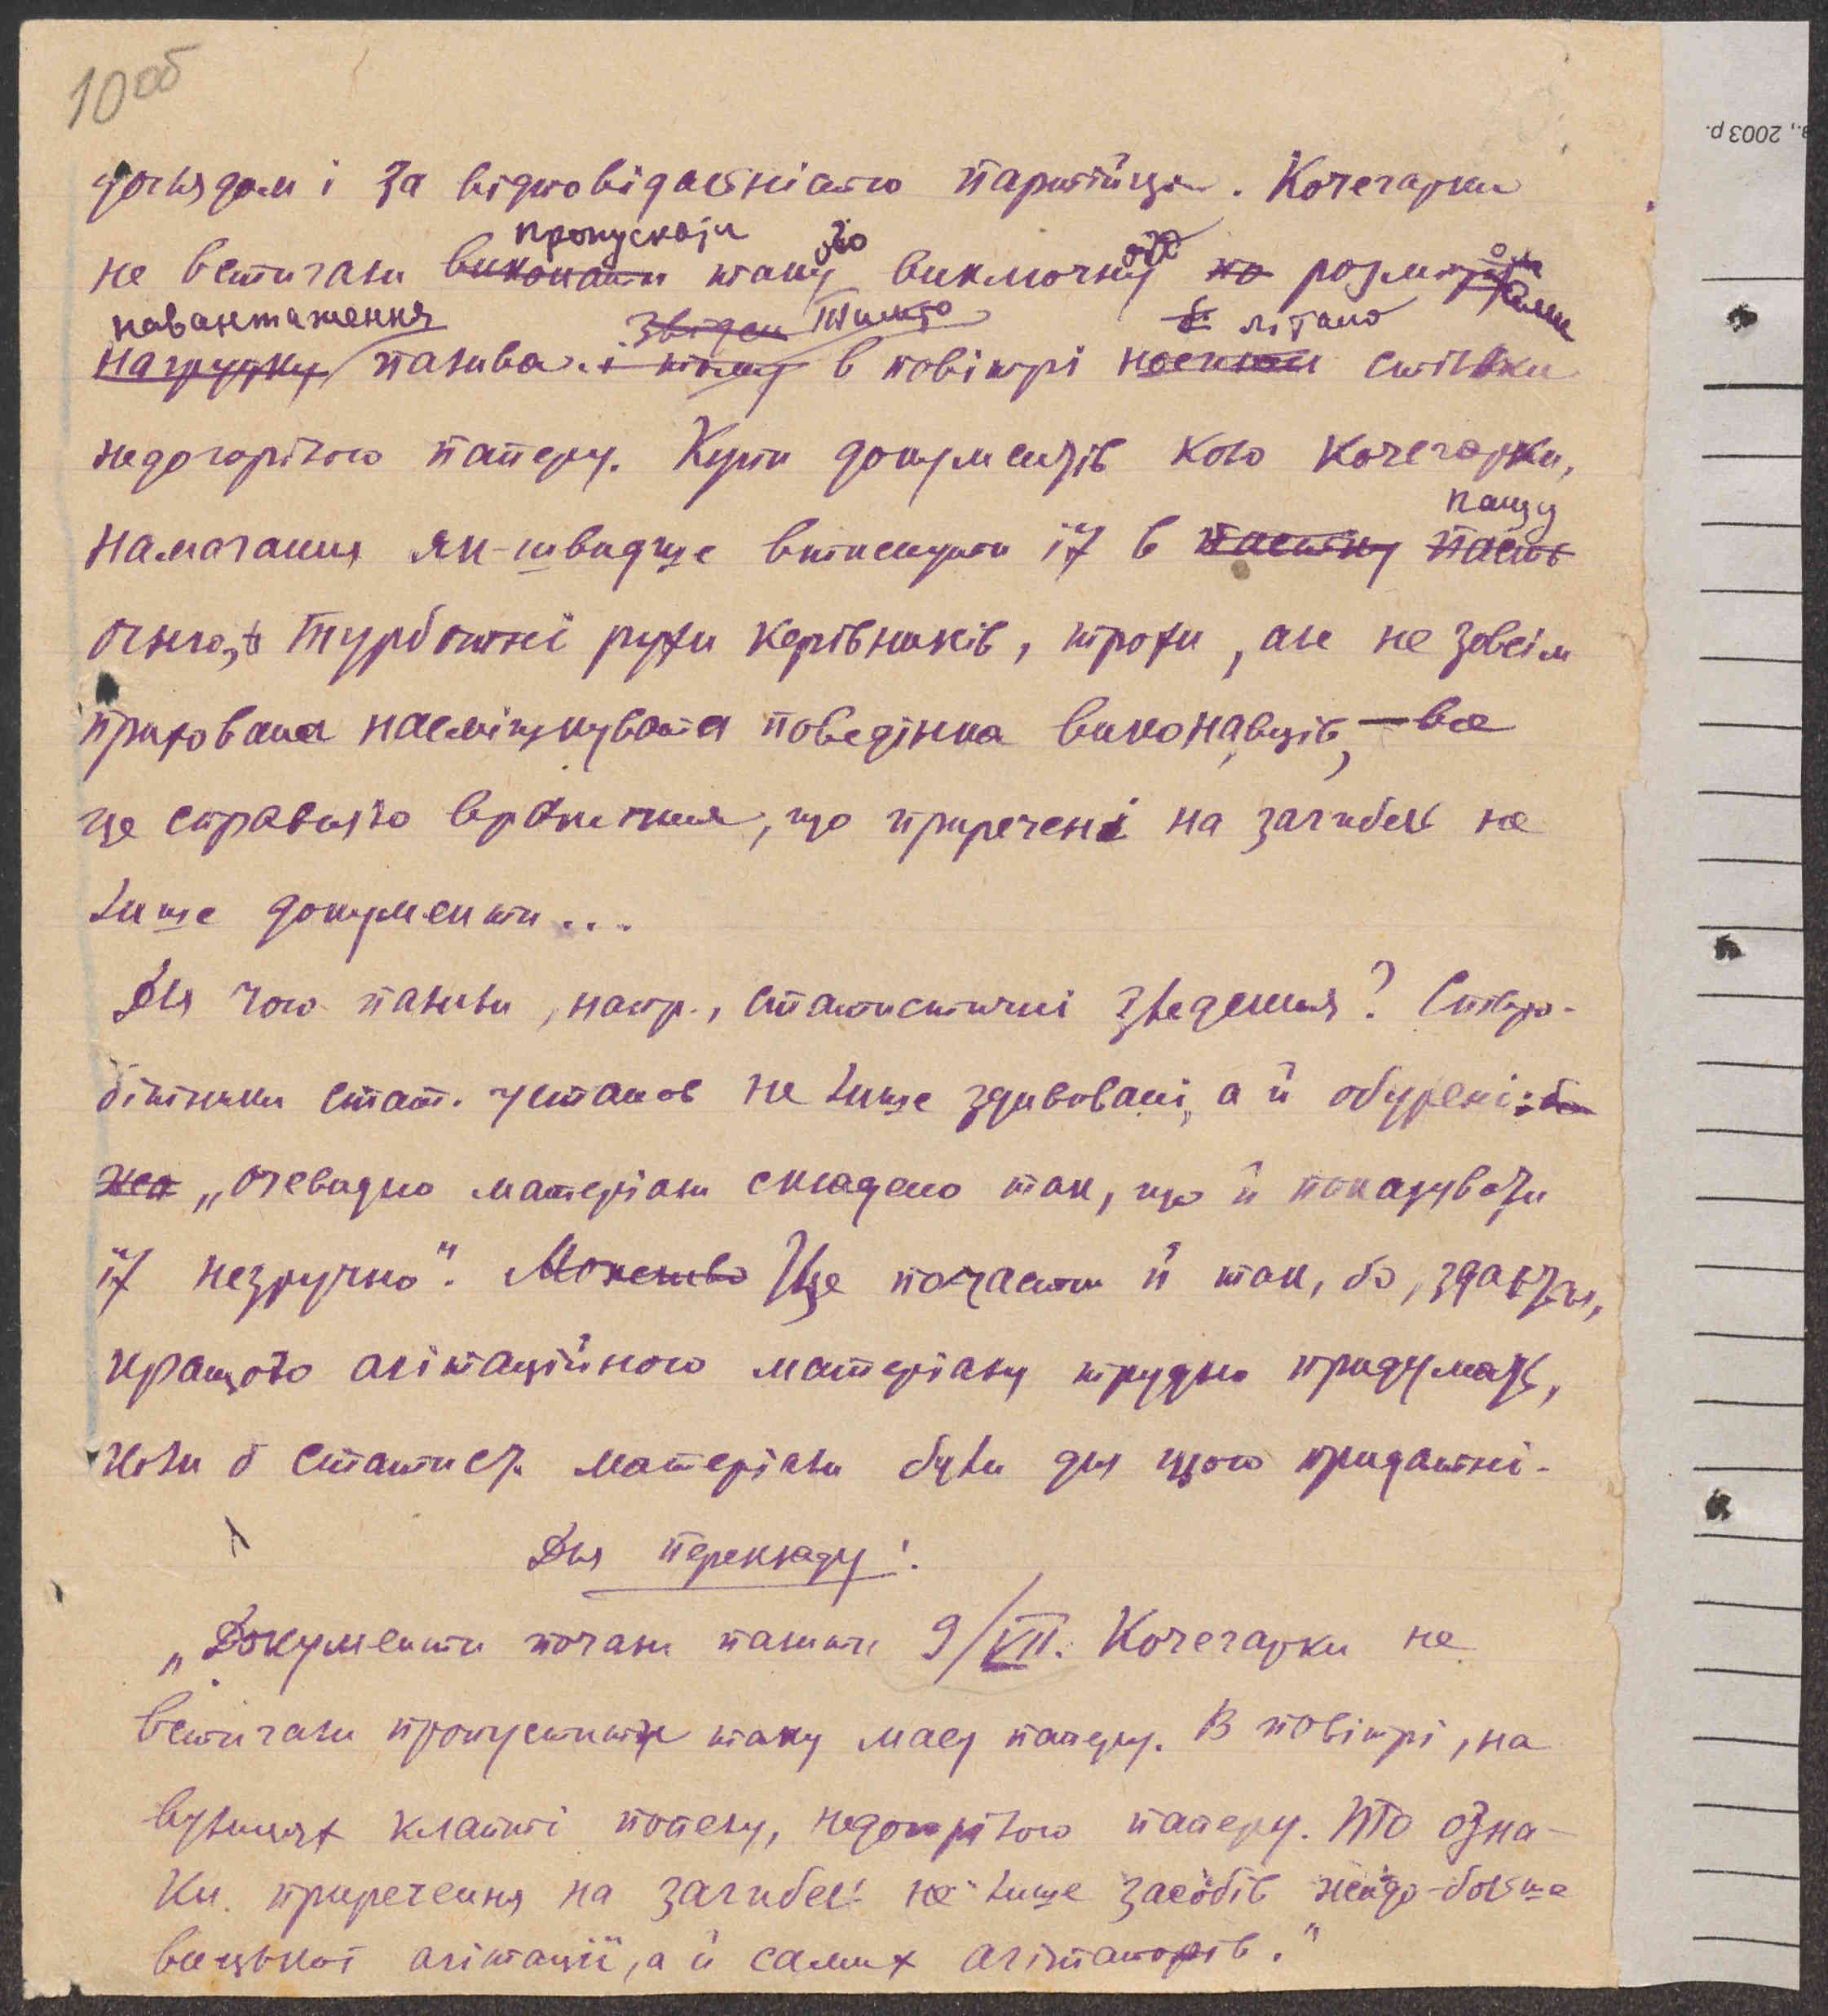 10 об
в., 2003 р.
доглядом і за відповідальністю партійця. Кочегарки
пропускати
не встигали виконати таку виключну по розмірами
навантаження Звідси Тимто б літало
нагрузку палива. і тому в повітрі носили стільки
недогорілого паперу. Купи документів коло кочегарки,
пащу
намагання як-швидше втиснути їх в пастку пасть
огню, турботні рухи керівників, трохи, але не зовсім
прихована насмішкувата поведінка виконавців, — все
це справляло враження, що приречені на загибель не
лише документи...
Для чого палили, напр., статистичні зведення? Співро-
бітники стат. установ не лише здивовані, а й обурені:
"очевидно матеріали складено так, що й показувати
їх незручно". Можливо Це почасти й так, бо, здається,
кращого агітаційного матеріалу трудно придумать,
коли б статист. матеріали були для цього придатні.
Для перекладу:
"Документи почали палити 9/VII. Кочегарки не
встигали пропустити таку масу паперу. В повітрі, на
вулицях клапті попелу, недогорілого паперу. То озна-
ки приречення на загибель не лише засобів жидо-больше
вицької агітації, а й самих агітаторів."